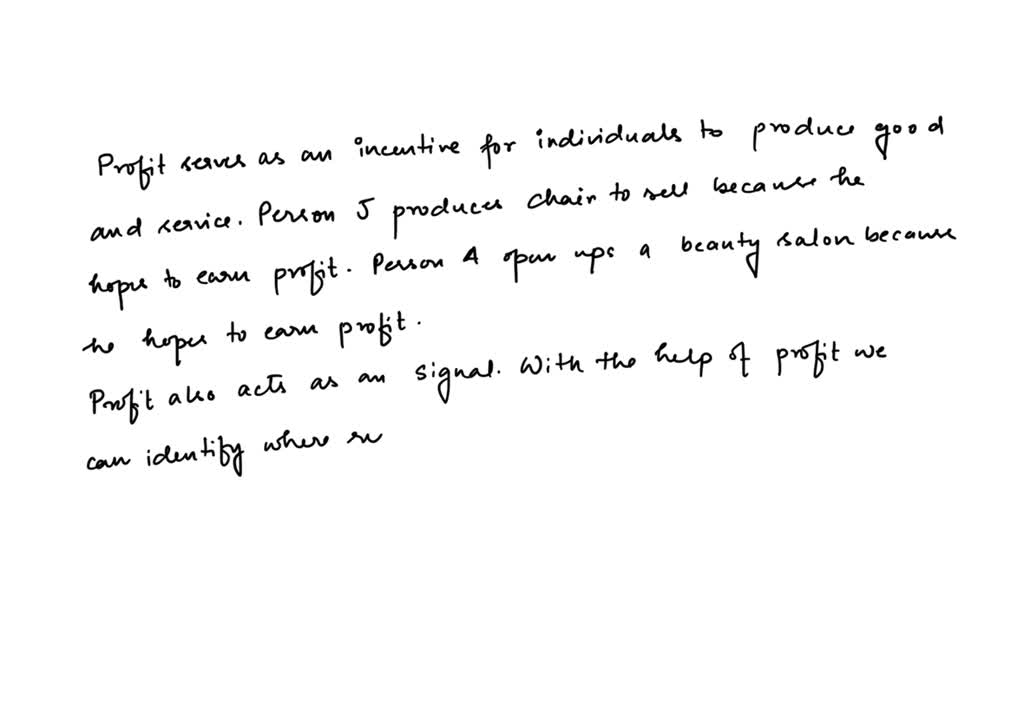 Profit serves as an incentive for individuals to produce good
and service. Person J produces chair to sell because he
hopes to earn profit. Person A open ups a beauty salon because
he hopes to earn profit.
Profit also acts as an signal. With the help of profit we
can identify where